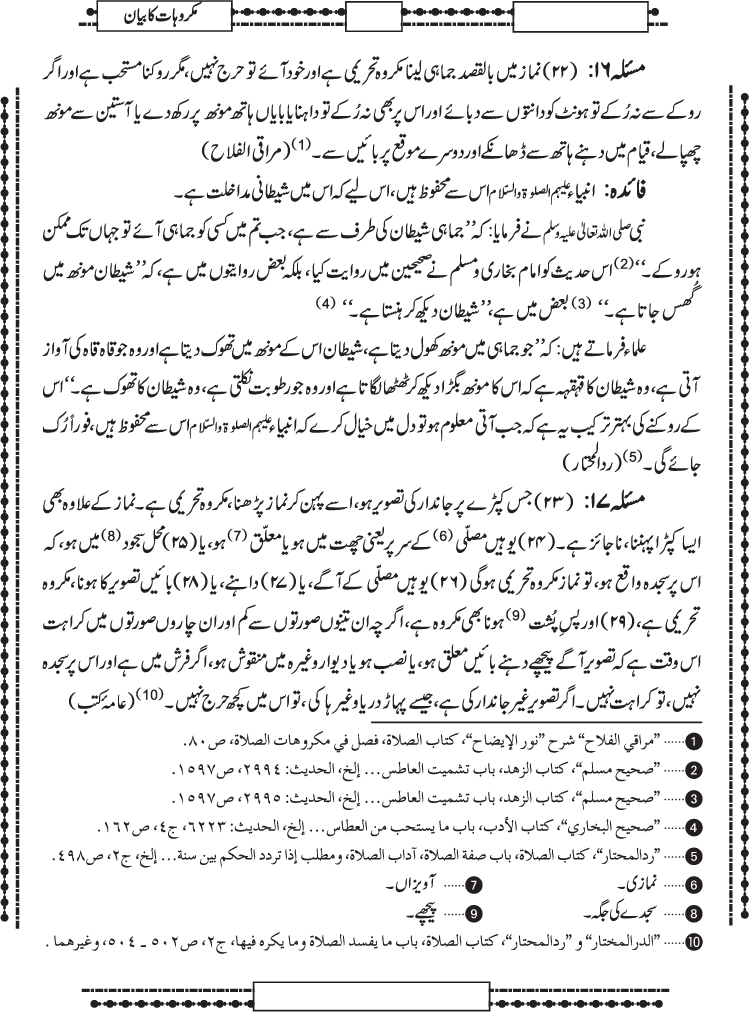 مکروہات کا بیان
مسئلہ ۱۶: (۲۲) نماز میں بالقصد جماہی لینا مکروہ تحریمی ہے اور خود آئے تو حرج نہیں، مگر روکنا مستحب ہے اور اگر
روکے سے نہ رُکے تو ہونٹ کو دانتوں سے دبائے اور اس پر بھی نہ رُکے تو داہنا یا بایاں ہاتھ مونھ پر رکھ دے یا آستین سے مونھ
چھپالے، قیام میں دہنے ہاتھ سے ڈھانکے اور دوسرے موقع پر بائیں سے۔(1) (مراقی الفلاح)
فائدہ: انبیاء علیہم الصلوۃ والسّلام اس سے محفوظ ہیں، اس لیے کہ اس میں شیطانی مداخلت ہے۔
نبی صلی اللہ تعالیٰ علیہ وسلم نے فرمایا: کہ ’’جماہی شیطان کی طرف سے ہے، جب تم میں کسی کو جماہی آئے تو جہاں تک ممکن
ہو روکے۔‘‘(2) اس حدیث کو امام بخاری و مسلم نے صحیحین میں روایت کیا، بلکہ بعض روایتوں میں ہے، کہ ’’شیطان مونھ میں
گُھس جاتا ہے۔‘‘ (3) بعض میں ہے، ’’شیطان دیکھ کر ہنستا ہے۔‘‘ (4)
علماء فرماتے ہیں: کہ ’’جو جماہی میں مونھ کھول دیتا ہے، شیطان اس کے مونھ میں تھوک دیتا ہے اور وہ جو قاہ قاہ کی آواز
آتی ہے، وہ شیطان کا قہقہہ ہے کہ اس کا مونھ بگڑا دیکھ کر ٹھٹھا لگاتا ہے اور وہ جو رطوبت نکلتی ہے، وہ شیطان کا تھوک ہے۔‘‘ اس
کے روکنے کی بہتر ترکیب یہ ہے کہ جب آتی معلوم ہو تو دل میں خیال کرے کہ انبیاء علیہم الصلوۃ والسّلام اس سے محفوظ ہیں، فوراً رُک
جائے گی۔(5) (ردالمحتار)
مسئلہ ۱۷: (۲۳) جس کپڑے پر جاندار کی تصویر ہو، اسے پہن کر نماز پڑھنا، مکروہ تحریمی ہے۔ نماز کے علاوہ بھی
ایسا کپڑا پہننا، ناجائز ہے۔ (۲۴) یوہیں مصلّی (6) کے سر پر یعنی چھت میں ہو یا معلّق (7) ہو، یا (۲۵) محل سجود (8) میں ہو، کہ
اس پر سجدہ واقع ہو، تو نماز مکروہ تحریمی ہوگی (۲۶) یوہیں مصلّی کے آگے، یا (۲۷) داہنے، یا (۲۸) بائیں تصویر کا ہونا، مکروہ
تحریمی ہے، (۲۹) اور پسِ پُشت (9) ہونا بھی مکروہ ہے، اگرچہ ان تینوں صورتوں سے کم اور ان چاروں صورتوں میں کراہت
اس وقت ہے کہ تصویر آگے پیچھے دہنے بائیں معلق ہو، یا نصب ہو یا دیوار وغیرہ میں منقوش ہو، اگر فرش میں ہے اور اس پر سجدہ
نہیں، تو کراہت نہیں۔ اگر تصویر غیر جاندار کی ہے، جیسے پہاڑ دریا وغیرہا کی، تو اس میں کچھ حرج نہیں۔(10) (عامۂ کتب)
1 ...... ”مراقي الفلاح“ شرح ”نور الإيضاح“، كتاب الصلاة، فصل في مكروهات الصلاة، ص٨٠.
2 ...... ”صحيح مسلم“، كتاب الزهد، باب تشميت العاطس... إلخ، الحديث: ٢٩٩٤، ص١٥٩٧.
3 ...... ”صحيح مسلم“، كتاب الزهد، باب تشميت العاطس... إلخ، الحديث: ٢٩٩٥، ص١٥٩٧.
4 ...... ”صحيح البخاري“، كتاب الأدب، باب ما يستحب من العطاس... إلخ، الحديث: ٦٢٢٣، ج٤، ص١٦٢.
5 ...... ”ردالمحتار“، كتاب الصلاة، باب صفة الصلاة، آداب الصلاة، ومطلب إذا تردد الحكم بين سنة... إلخ، ج٢، ص٤٩٨.
6 ...... نمازی۔ 7 ...... آویزاں۔
8 ...... سجدے کی جگہ۔ 9 ...... پیچھے۔
10 ...... ”الدرالمختار“ و ”ردالمحتار“، كتاب الصلاة، باب ما يفسد الصلاة وما يكره فيها، ج٢، ص٥٠٢ ـ ٥٠٤، وغيرهما .